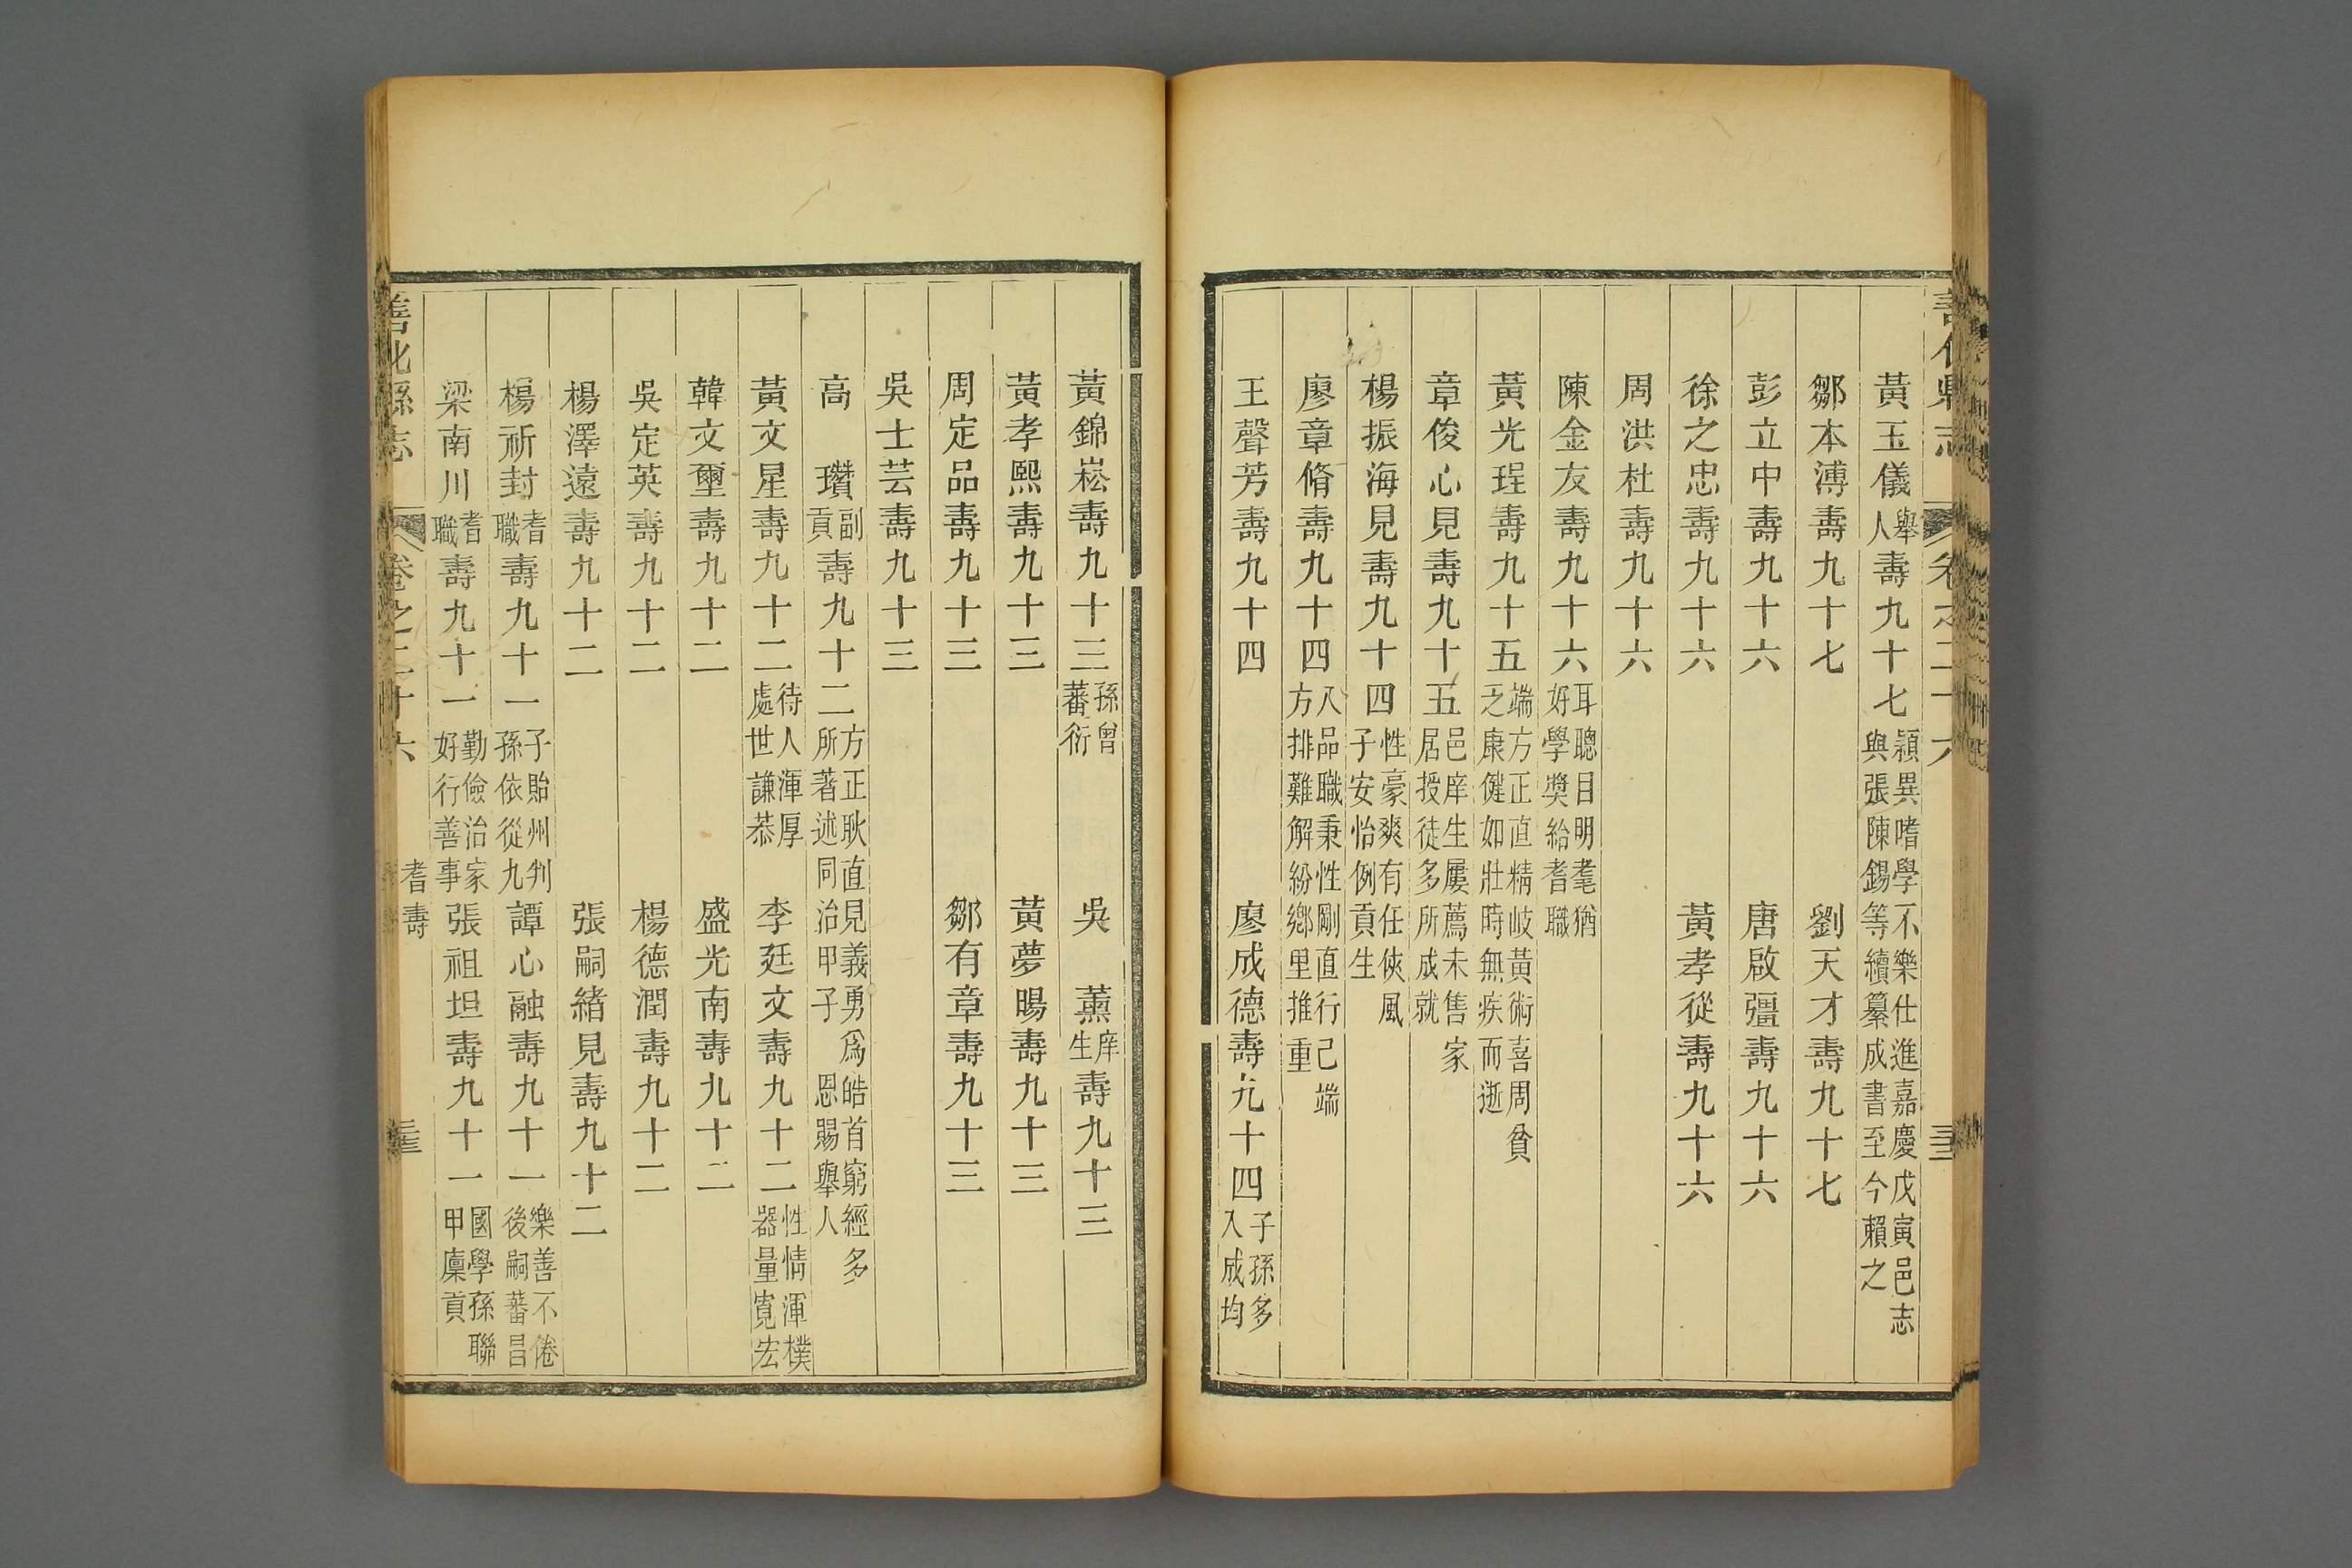 黃玉儀舉人壽九十七穎異嗜學不樂仕進嘉慶戊寅邑志與張陳錫等續纂成書至今賴之
鄒本溥壽九十七 劉天才壽九十七
彭立中壽九十六 唐啟疆壽九十六
徐之忠壽九十六 黃孝從壽九十六
周洪杜壽九十六
陳金友壽九十六耳聰目明耄猶好學奬給耆職
黃光珵壽九十五端方正直精岐黃術喜周貧乏康健如壯時無疾而逝
章俊心見壽九十五邑庠生屢薦未售家居授徒多所成就
楊振海見壽九十四性豪爽有任俠風子安怡例貢生
廖章脩壽九十四八品職秉性剛直行己端方排難解紛鄉里推重
王聲芳壽九十四 廖成德壽九十四子孫多入成均
黃錦崧壽九十三孫曾蕃衍 吳薰庠生壽九十三
黃孝熙壽九十三 黃夢暘壽九十三
周定品壽九十三 鄒有章壽九十三
吳士芸壽九十三
高瓚副貢壽九十二方正耿直見義勇爲皓首窮經多所著述同治甲子恩賜舉人
黃文星壽九十二待人渾厚處世謙恭 李廷文壽九十二性情渾樸器量寬宏
韓文璽壽九十二 盛光南壽九十二
吳定英壽九十二 楊德潤壽九十二
楊澤遠壽九十二 張嗣緒見壽九十二
楊祈封耆職壽九十一子貽州判孫依從九 譚心融壽九十一樂善不倦後嗣蕃昌
梁南川耆職壽九十一勤儉治家好行善事 張祖坦壽九十一國學孫聯甲廩貢
善化縣志 卷之二十六 耆壽